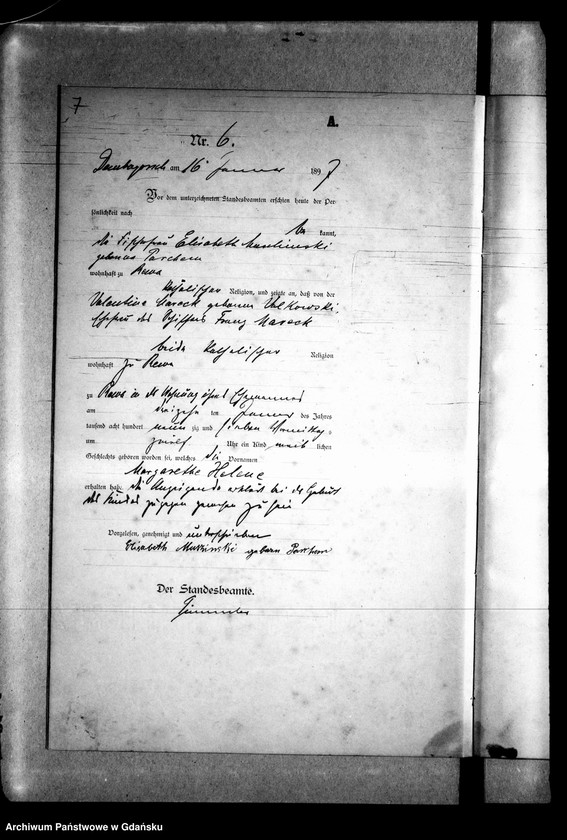 7
A.
Nr. 6.
am 16 Januar 1897
Vor dem unterzeichneten Standesbeamten erschien heute der Per-
sönlichkeit nach
kannt,
die Elisabeth
geborene
wohnhaft zu Rewa
katholischer Religion, und zeigte an, daß von der
Valentine Mareck geborenen
Ehefrau des Schiffers Franz Mareck
beide katholischer Religion
wohnhaft zu Rewa
zu Rewa in der Wohnung ihres Ehemannes
am ten Januar des Jahres
tausend acht hundert neun zig und sieben Vormittag
um zwölf Uhr ein Kind weib lichen
Geschlechts geboren worden sei, welches die Vornamen
Margarethe Helene
erhalten habe. Die Anzeigende erklärt bei der Geburt
des Kindes zugegen gewesen zu sein
Vorgelesen, genehmigt und unterschrieben
Elisabeth geborn
Der Standesbeamte.
Archiwum Państwowe w Gdańsku